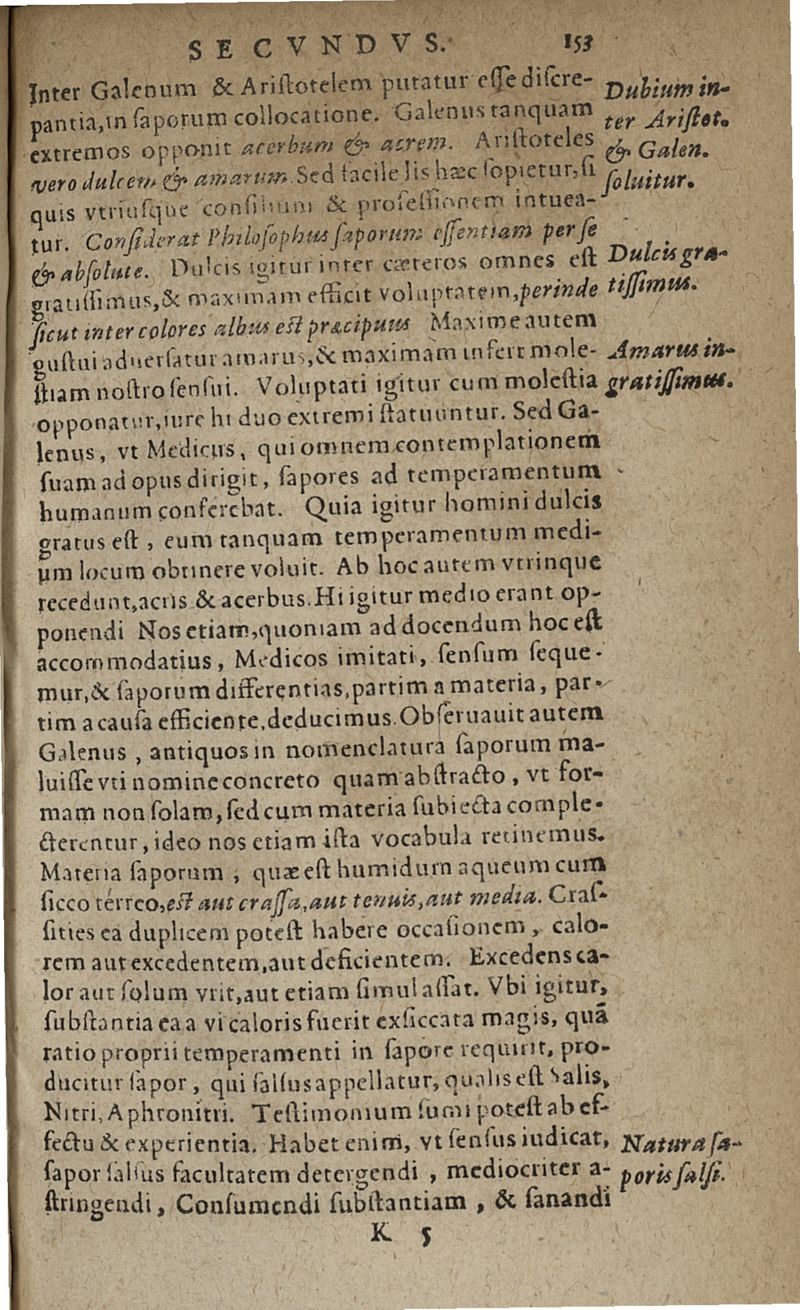 SECVNDVS. 153
Inter Galenum & Ariſtotelem putatur eſſe diſcre-
pantia, in ſaporum collocatione. Galenus tanquam
extremos opponit acerbum & acrem. Ariſtoteles
vero dulcem & amarum. Sed facile lis hæc ſopietur, ſi
quis vtriuſque conſilium & profeſſionem intuea-
tur. Conſiderat Philoſophus ſaporum eſſentiam per ſe
& abſolute. Dulcis igitur inter cæteros omnes eſt
gratiſſimus, & maximam efficit voluptatem, perinde
ſicut inter colores albus eſt præcipuus Maxime autem
guſtui aduerſatur amarus, & maximam infert mole-
ſtiam noſtro ſenſui. Voluptati igitur cum moleſtia
opponatur, iure hi duo extremi ſtatuuntur. Sed Ga-
lenus, vt Medicus, qui omnem contemplationem
ſuam ad opus dirigit, ſapores ad temperamentum
humanum conferebat. Quia igitur homini dulcis
gratus eſt, eum tanquam temperamentum medi-
um locum obtinere voluit. Ab hoc autem vtrinque
recedunt, acris & acerbus. Hi igitur medio erant op-
ponendi Nos etiam, quoniam ad docendum hoc eſt
accommodatius, Medicos imitati, ſenſum ſeque-
mur, & ſaporum differentias, partim a materia, par-
tim a cauſa efficiente, deducimus. Obſeruauit autem
Galenus, antiquos in nomenclatura ſaporum ma-
luiſſe vti nomine concreto quam abſtracto, vt for-
mam non ſolam, ſed cum materia ſubiecta comple-
cterentur, ideo nos etiam iſta vocabula retinemus.
Materia ſaporum, quæ eſt humidum aqueum cum
ſicco terreo, eſt aut craſſa, aut tenuis, aut media. Craſ-
ſities ea duplicem poteſt habere occaſionem, calo-
rem aut excedentem, aut deficientem. Excedens ca-
lor aut ſolum vrit, aut etiam ſimul aſſat. Vbi igitur,
ſubſtantia ea a vi caloris fuerit exſiccata magis, quã
ratio proprii temperamenti in ſapore requirit, pro-
ducitur ſapor, qui ſalſus appellatur, qualis eſt Salis,
Nitri, Aphronitri. Teſtimonium ſumi poteſt ab ef-
fectu & experientia. Habet enim, vt ſenſus iudicat,
ſapor ſalſus facultatem detergendi, mediocriter a-
ſtringendi, Conſumendi ſubſtantiam, & ſanandi
K 5
Dubium in-
ter Ariſtot.
& Galen.
ſoluitur.
Dulcis gra-
tiſſimus.
Amarus in-
gratiſſimus.
Natura ſa-
poris ſalſi.